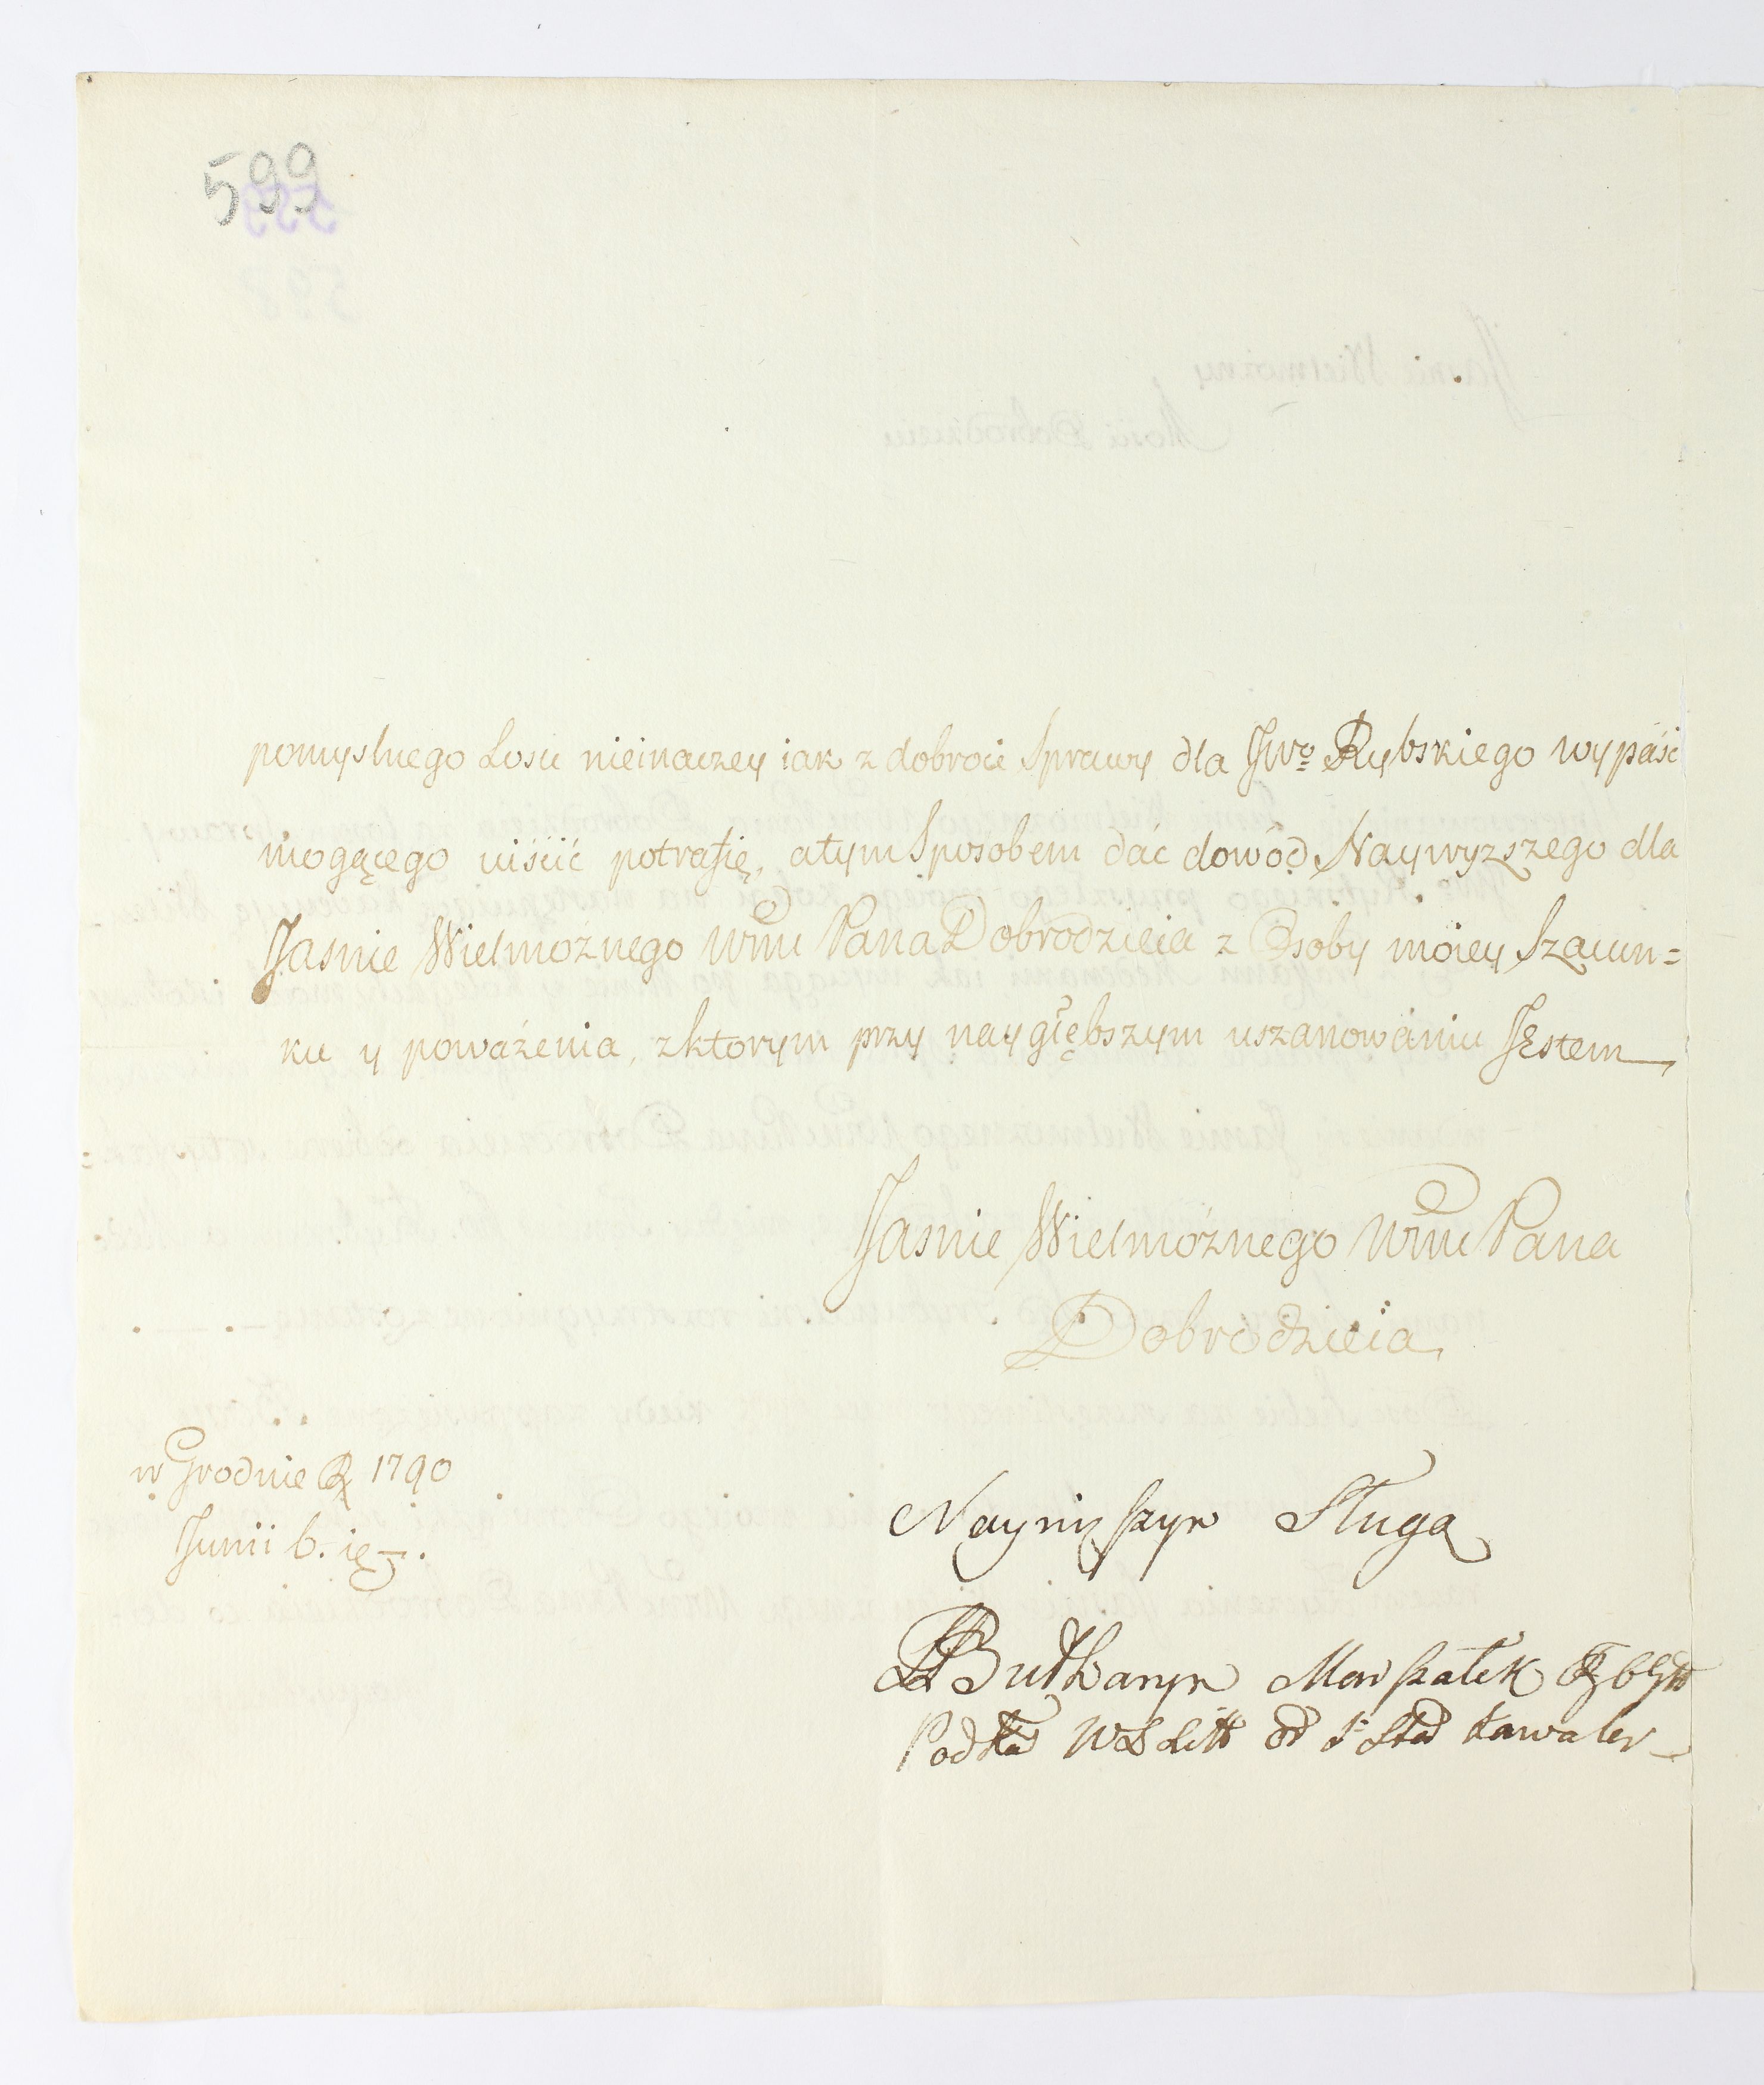 599
pomyslnego Losu nieinaczey iak z dobroci Sprawy dla JWo Rybskiego wypaść
mogącego uiścić potrafię, atym Sposobem dać dowód Naywyzszego dla
Jasnie Wielmoznego WMu Pana Dobrodzieia z Osoby moiey Szacun=
ku y poważenia, zktorym przy naygłębszym uszanowaniu Jestem
Jasnie Wielmoznego WMu Pana
Dobrodzieia
w Grodnie R 1790
Junii 6. ię
Nayniższym Sługa
Marszałek
Pod WXLitt Kawaler